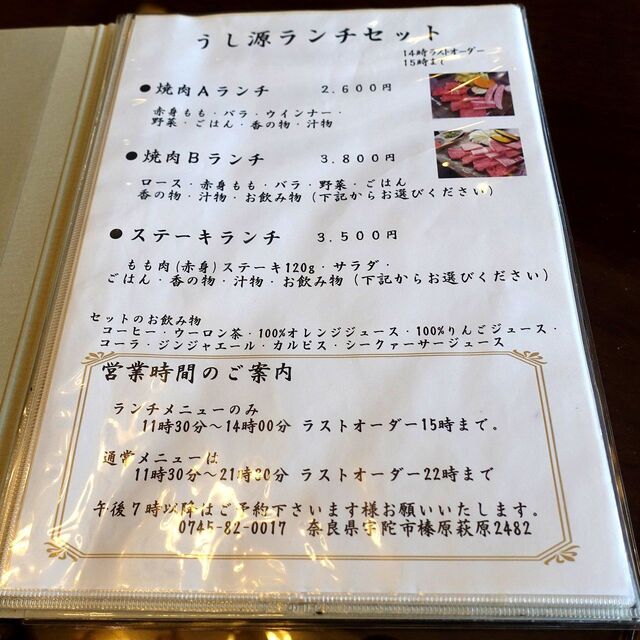 うし源ランチセット
14時ラストオーダー
15時まで
●焼肉Aランチ 2.600円
赤身もも・バラ・ウインナー・
野菜・ごはん・香の物・汁物
●焼肉Bランチ 3.800円
ロース・赤身もも・バラ・野菜・ごはん
香の物・汁物・お飲み物(下記からお選びください)
●ステーキランチ 3.500円
もも肉(赤身)ステーキ120g・サラダ・
ごはん・香の物・汁物・お飲み物(下記からお選びください)
セットのお飲み物
コーヒー・ウーロン茶・100%オレンジジュース・100%りんごジュース・
コーラ・ジンジャエール・カルピス・シークァーサージュース
営業時間のご案内
ランチメニューのみ
11時30分~14時00分 ラストオーダー15時まで。
通常メニューは
11時30分~21時30分 ラストオーダー22時まで
午後7時以降はご予約下さいます様お願いいたします。
0745-82-0017 奈良県宇陀市榛原萩原2482